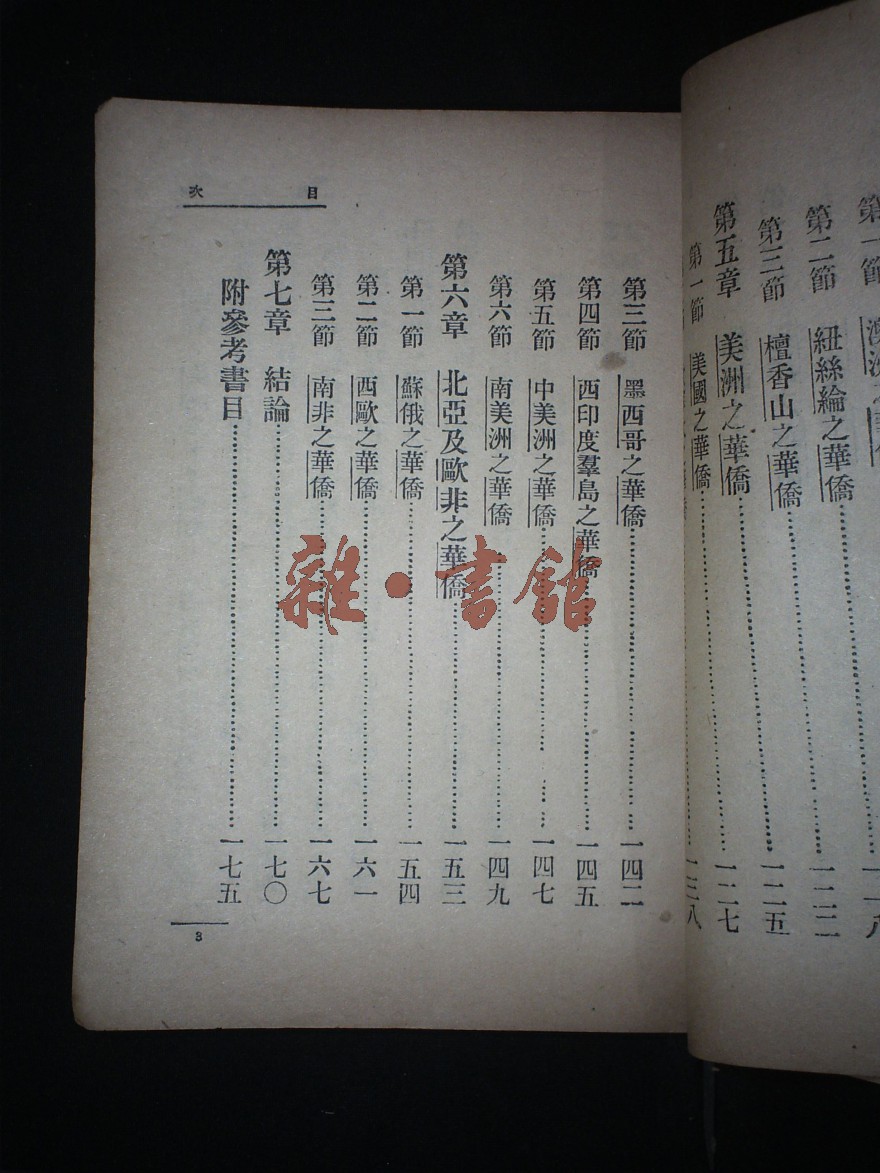 第一節 澳洲之華僑 一一八
第二節 紐絲綸之華僑…………一二二
第三節 檀香山之華僑…………一二五
第五章 美洲之華僑…………一二七
第一節 美國之華僑…………一三八
目次
第三節 墨西哥之華僑…………一四二
第四節 西印度羣島之華僑…………一四五
第五節 中美洲之華僑…………一四七
第六節 南美洲之華僑…………一四九
第六章 北亞及歐非之華僑…………一五三
第一節 蘇俄之華僑…………一五四
第二節 西歐之華僑…………一六一
第三節 南非之華僑…………一六七
第七章 結論…………一七〇
附參考書目…………一七五
3
雜·書館